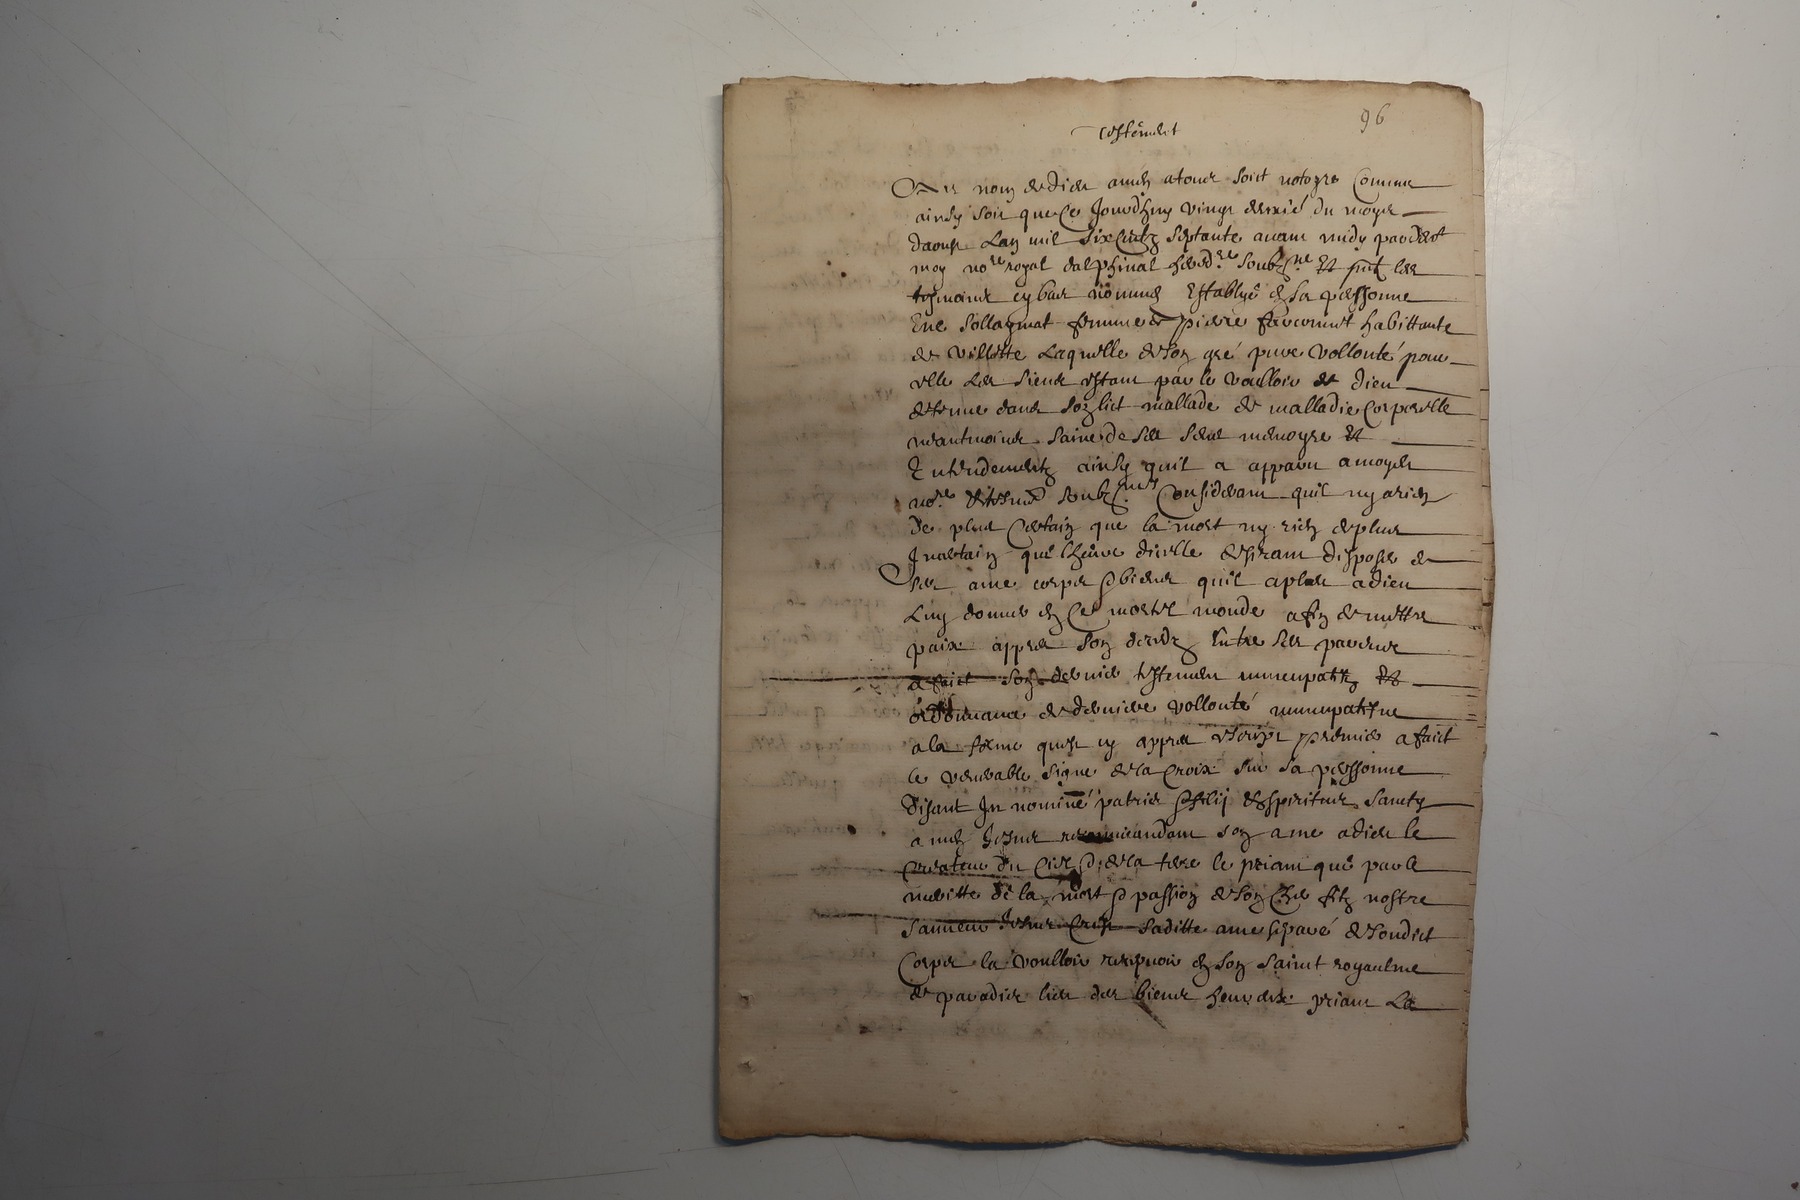 96
Testement
Au nom de dieu amen a tous soict notoyre Comme
ainsy soit que Ce Jourdhuy vingt du moys
daoust Lan mil six Centz septante avant midy par devt
moy nore royal dalphinal hered.re soubz.ne et les
tesmoins cy bas nommes Establye en sa perssonne
femme de pierre habittante
de villette Laquelle de son gré pure vollonté pour
elle Les siens estant par le voulloir de dieu
detenue dans son lict mallade de malladie Corporelle
neantmoins saine de ses sens memoyre et
Entendementz ainsy quil a apparu a moydt
nore et tesmos soubz.nes Considerant quil ny a rien
de plus Certain que la mort ny rien de plus
Incertain que lheure dicelle desirant disposer de
ses ame corps & biens quil a pleu a dieu
Luy donner en Ce mortel monde afin de mettre
paix appres son deces Entre ses parens
a faict son dernier testement nuncupatif et
ordonnance de derniere vollonté nuncupatifve
a la forme quest cy appres escript premier a faict
le venerable signe de la Croix sur sa perssonne
disant In nominé patris & filij et spiritus sancty
amen Jesus recommandant son ame a dieu le
Createur du Ciel & de la terre le priant que par le
meritte de la mort & passion de son Cher filz nostre
sauveur Jesus Crist saditte ame separé de sondict
Corps la voulloir recepvoir en son sainct royaulme
de paradis lieu des biens heureux priant La